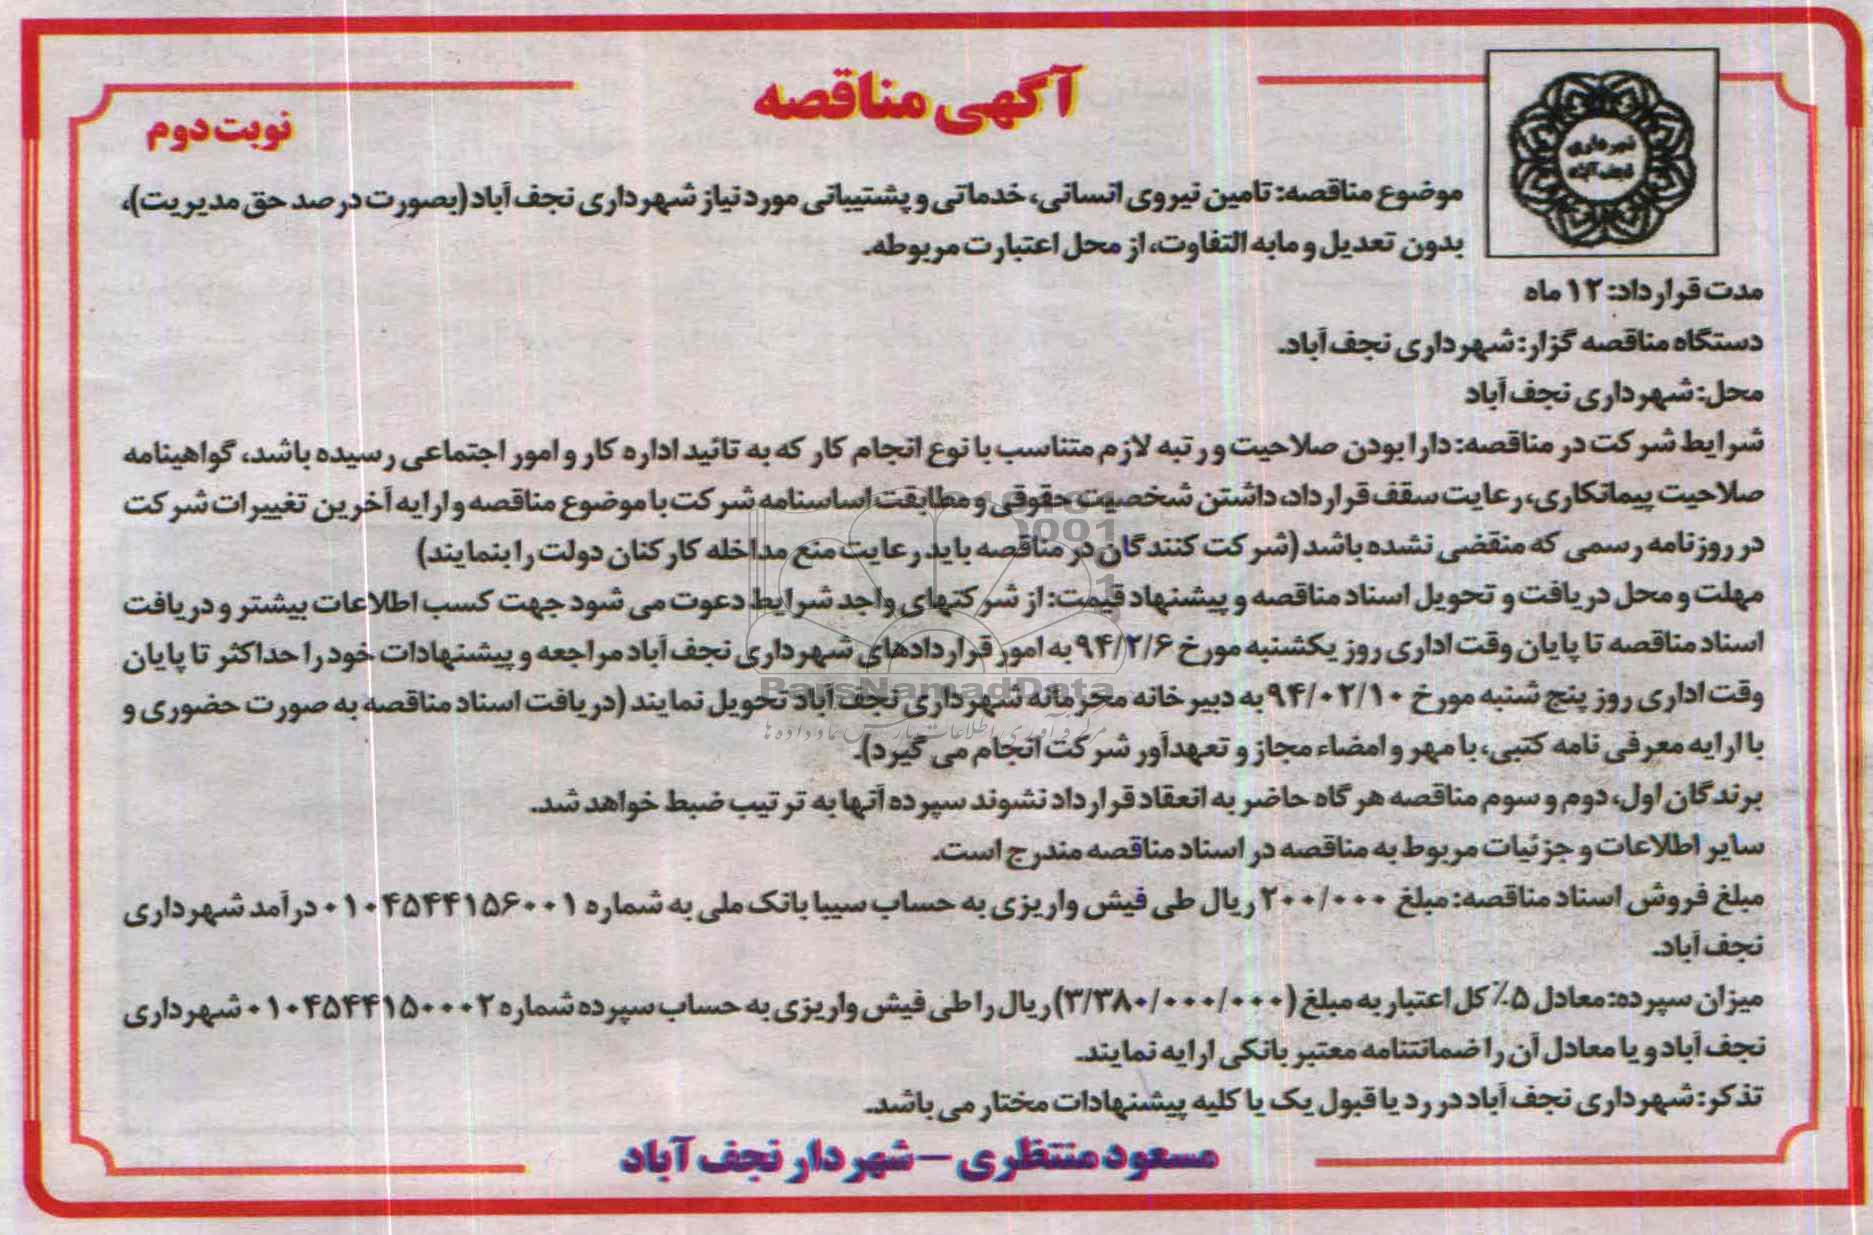 آگهی مناقصه
نوبت دوم
شهرداری
نجف آباد
موضوع مناقصه: تامین نیروی انسانی، خدماتی و پشتیبانی مورد نیاز شهرداری نجف آباد (بصورت درصد حق مدیریت)،
بدون تعدیل و مابه التفاوت، از محل اعتبارت مربوطه.
مدت قرارداد: ۱۲ ماه
دستگاه مناقصه گزار: شهرداری نجف آباد.
محل: شهرداری نجف آباد
شرایط شرکت در مناقصه: دارا بودن صلاحیت و رتبه لازم متناسب با نوع انجام کار که به تائید اداره کار و امور اجتماعی رسیده باشد، گواهینامه
صلاحیت پیمانکاری، رعایت سقف قرارداد، داشتن شخصیت حقوقی و مطابقت اساسنامه شرکت با موضوع مناقصه و ارایه آخرین تغییرات شرکت
در روزنامه رسمی که منقضی نشده باشد (شرکت کنندگان در مناقصه باید رعایت منع مداخله کارکنان دولت را بنمایند)
مهلت و محل دریافت و تحویل اسناد مناقصه و پیشنهاد قیمت: از شرکتهای واجد شرایط دعوت می شود جهت کسب اطلاعات بیشتر و دریافت
اسناد مناقصه تا پایان وقت اداری روز یکشنبه مورخ ۹۴/۲/۶ به امور قراردادهای شهرداری نجف آباد مراجعه و پیشنهادات خود را حداکثر تا پایان
وقت اداری روز پنج شنبه مورخ ۹۴/۰۲/۱۰ به دبیرخانه محرمانه شهرداری نجف آباد تحویل نمایند (دریافت اسناد مناقصه به صورت حضوری و
با ارایه معرفی نامه کتبی، با مهر و امضاء مجاز و تعهدآور شرکت انجام می گیرد).
برندگان اول، دوم و سوم مناقصه هرگاه حاضر به انعقاد قرارداد نشوند سپرده آنها به ترتیب ضبط خواهد شد.
سایر اطلاعات و جزئیات مربوط به مناقصه در اسناد مناقصه مندرج است.
مبلغ فروش اسناد مناقصه: مبلغ ۲۰۰/۰۰۰ ریال طی فیش واریزی به حساب سیبا بانک ملی به شماره ۰۱۰۴۵۴۴۱۵۶۰۰۱ درآمد شهرداری
نجف آباد.
میزان سپرده: معادل ۵٪ کل اعتبار به مبلغ (۳/۳۸۰/۰۰۰/۰۰۰) ریال را طی فیش واریزی به حساب سپرده شماره ۰۱۰۴۵۴۴۱۵۰۰۰۲ شهرداری
نجف آباد و یا معادل آن را ضمانتنامه معتبر بانکی ارایه نمایند.
تذکر: شهرداری نجف آباد در رد یا قبول یک یا کلیه پیشنهادات مختار می باشد.
مسعود منتظری – شهردار نجف آباد
ParsNamadData